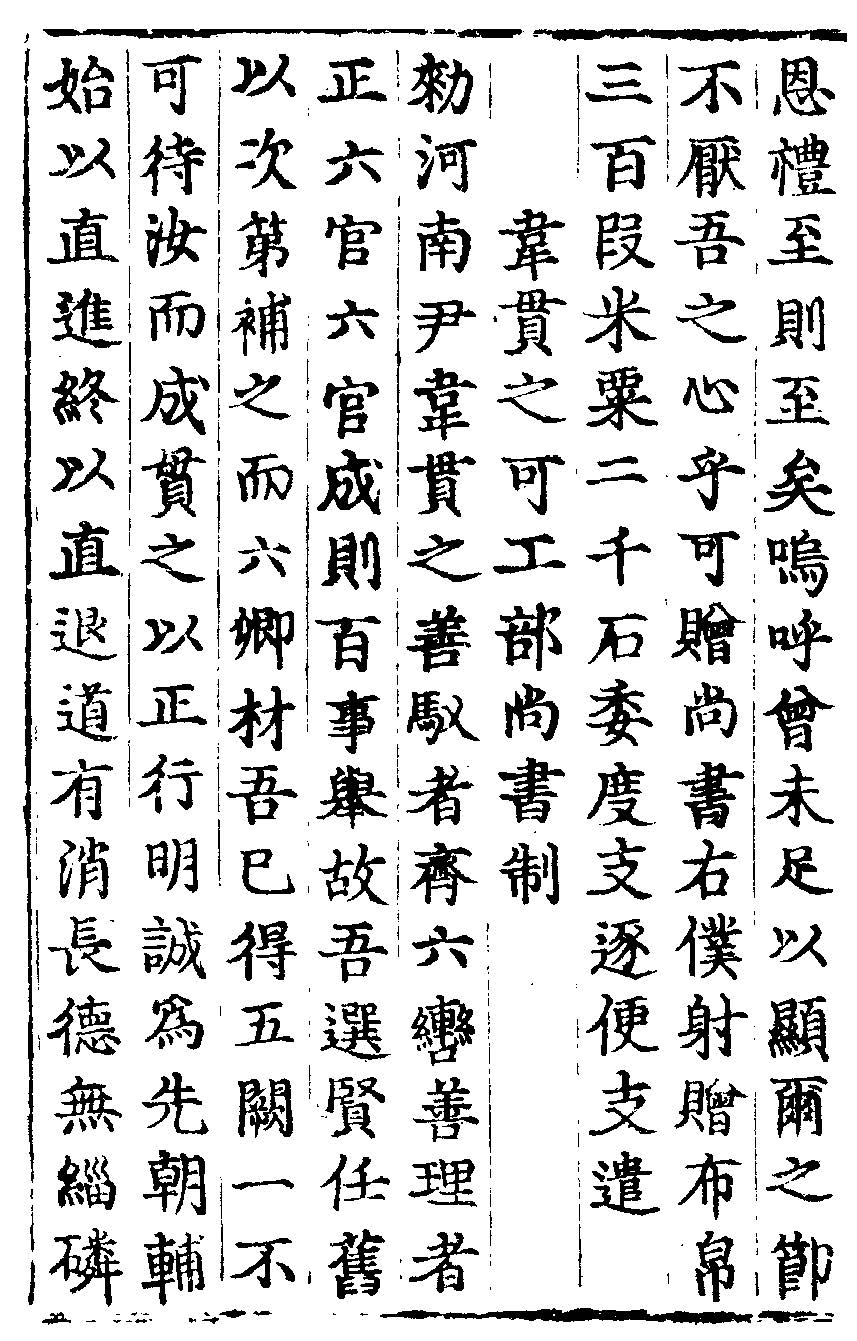 恩禮至則至矣嗚呼曾未足以顯爾之節
不厭吾之心乎可贈尚書右僕射贈布帛
三百段米粟二千石委度支逐便支遣
韋貫之可工部尚書制
勑河南尹韋貫之善馭者齊六轡善理者
正六官六官成則百事舉故吾選賢任舊
以次第補之而六卿材吾已得五闕一不
可待汝而成貫之以正行明誠爲先朝輔
始以直進終以直退道有消長德無緇磷